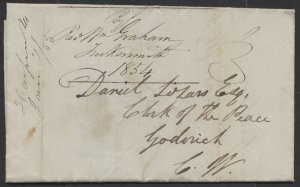 Revd Wm Graham
Tuckersmith
1854
Daniel Lizars Esq.
Clerk of the Peace
Goderich
C. W.
3